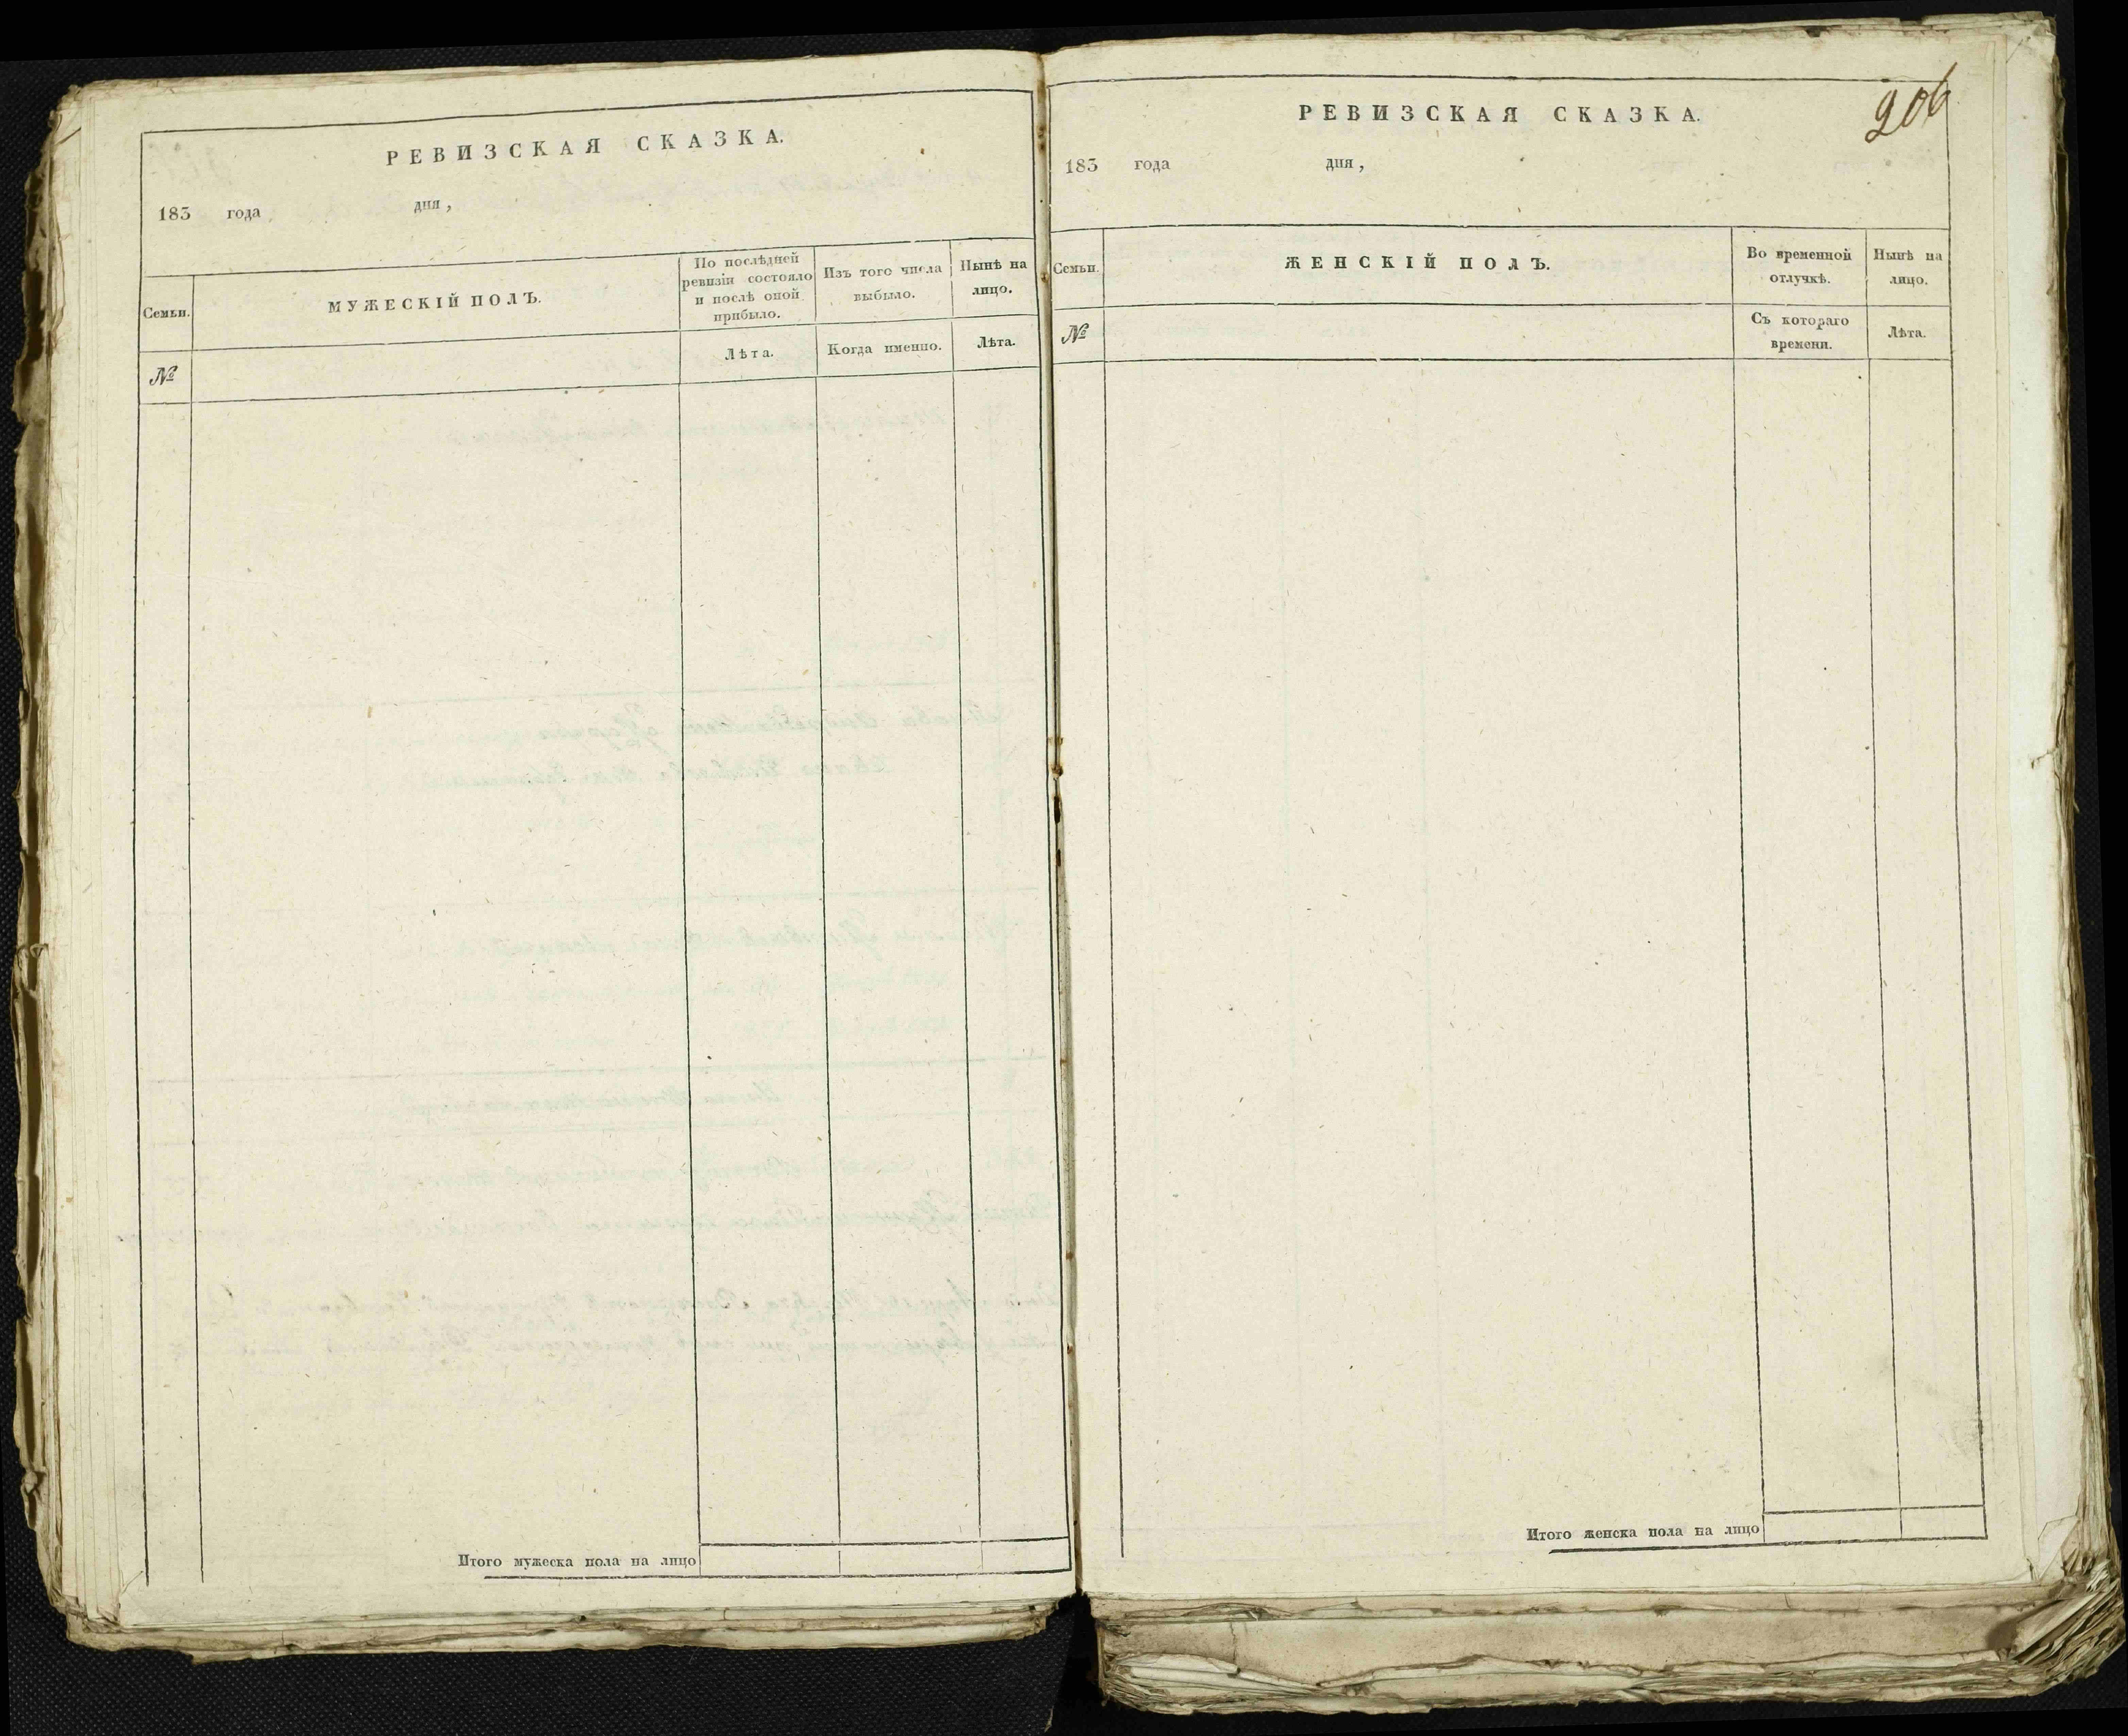 РЕВИЗСКАЯ СКАЗКА.
183 года дня,
Семьи.
МУЖЕСКІЙ ПОЛЪ.
По послѣдней
ревизіи состояло
и послѣ оной
прибыло.
Изъ того числа
выбыло.
Нынѣ на
лицо.
№
Лѣта.
Когда именно.
Лѣта.
Итого мужеска пола на лицо
206
РЕВИЗСКАЯ СКАЗКА.
183 года дня,
Семьи.
ЖЕНСКІЙ ПОЛЪ.
Во временной
отлучкѣ.
Нынѣ на
лицо.
№
Съ котораго
времени.
Лѣта.
Итого женска пола на лицо